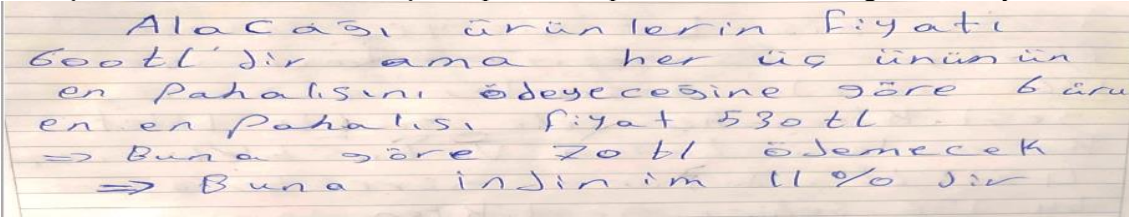 Alacağı ürünlerin fiyatı
600tl'dir ama her üç ünün ün
en Pahalısını ödeyeceğine göre 6 ürü
en en Pahalısı fiyat 530tl
=> Buna göre 70tl ödemecek
=> Buna indinim 11%dir